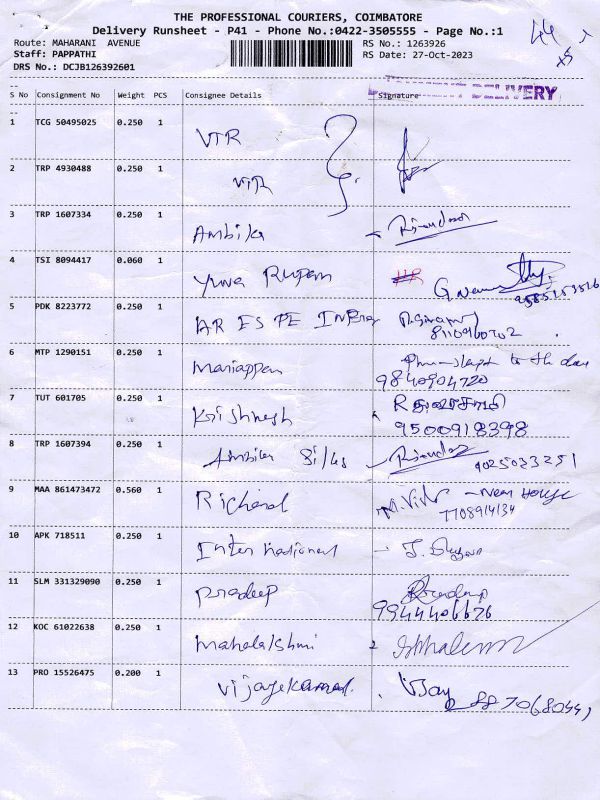 THE PROFESSIONAL COURIERS, COIMBATORE
Delivery Runsheet - P41 - Phone No.:0422-3505555 - Page No.:1
Route: MAHARANI AVENUE
RS No.: 1263926
Staff: PAPPATHI
RS Date: 27-Oct-2023
DRS No.: DCJB126392601
S No Consignment No Weight PCS Consignee Details Signature
DELIVERY
1 TCG 50495025 0.250 1 VTR
2 TRP 4930488 0.250 1 VTR
3 TRP 1607334 0.250 1 Ambika
4 TSI 8094417 0.060 1 Yuva Rupam
5 PDK 8223772 0.250 1
8110960702
6 MTP 1290151 0.250 1 Mariappan
9840904720
7 TUT 601705 0.250 1 Krishnesh
9500918398
8 TRP 1607394 0.250 1 Ambika Silks
9025033251
9 MAA 861473472 0.560 1 Richard - Near House
7708914134
10 APK 718511 0.250 1 International
11 SLM 331329090 0.250 1 Pradeep
9944406626
12 KOC 61022638 0.250 1 Mahalakshmi
13 PRO 15526475 0.200 1 Vijay